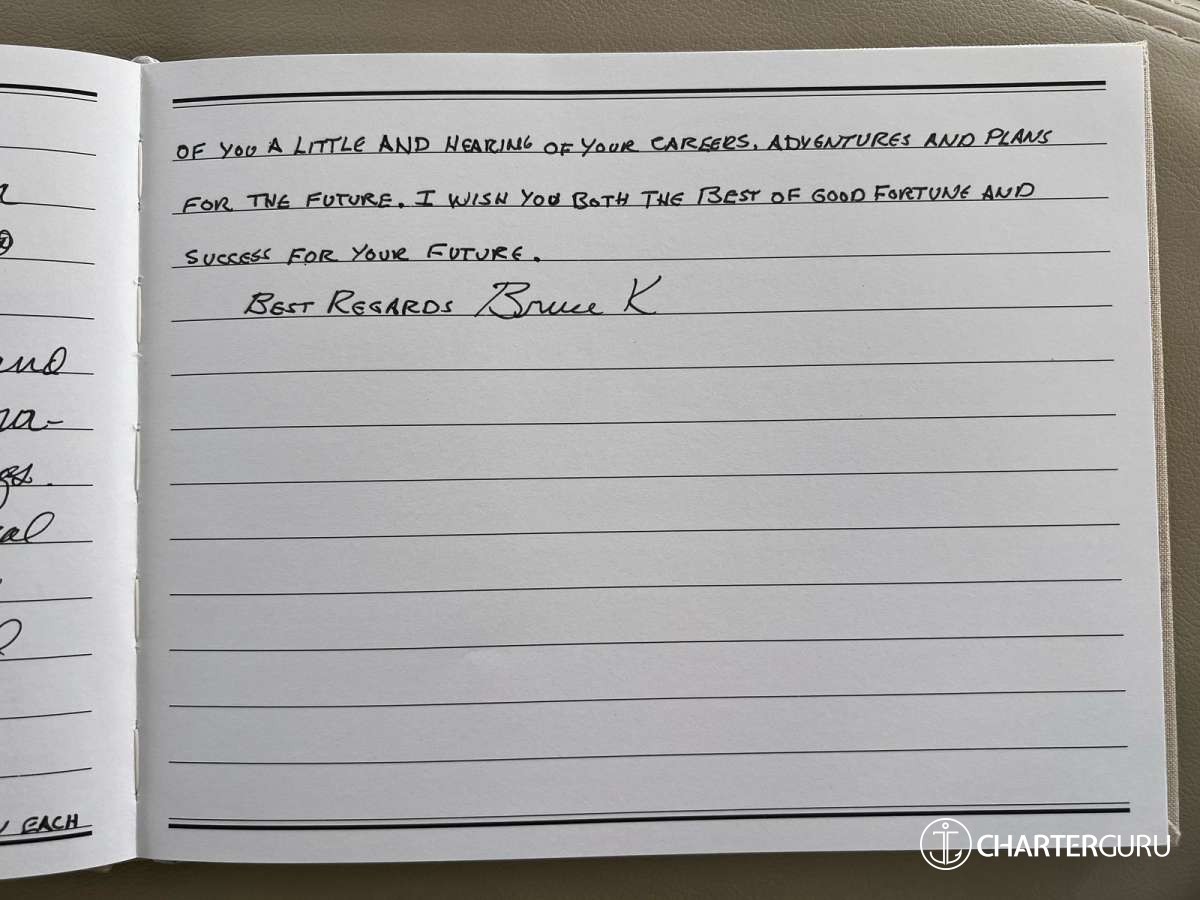 and
gs.
al
EACH
OF YOU A LITTLE AND HEARING OF YOUR CAREERS, ADVENTURES AND PLANS
FOR THE FUTURE. I WISH YOU BOTH THE BEST OF GOOD FORTUNE AND
SUCCESS FOR YOUR FUTURE.
BEST REGARDS Bruce K
CHARTERGURU